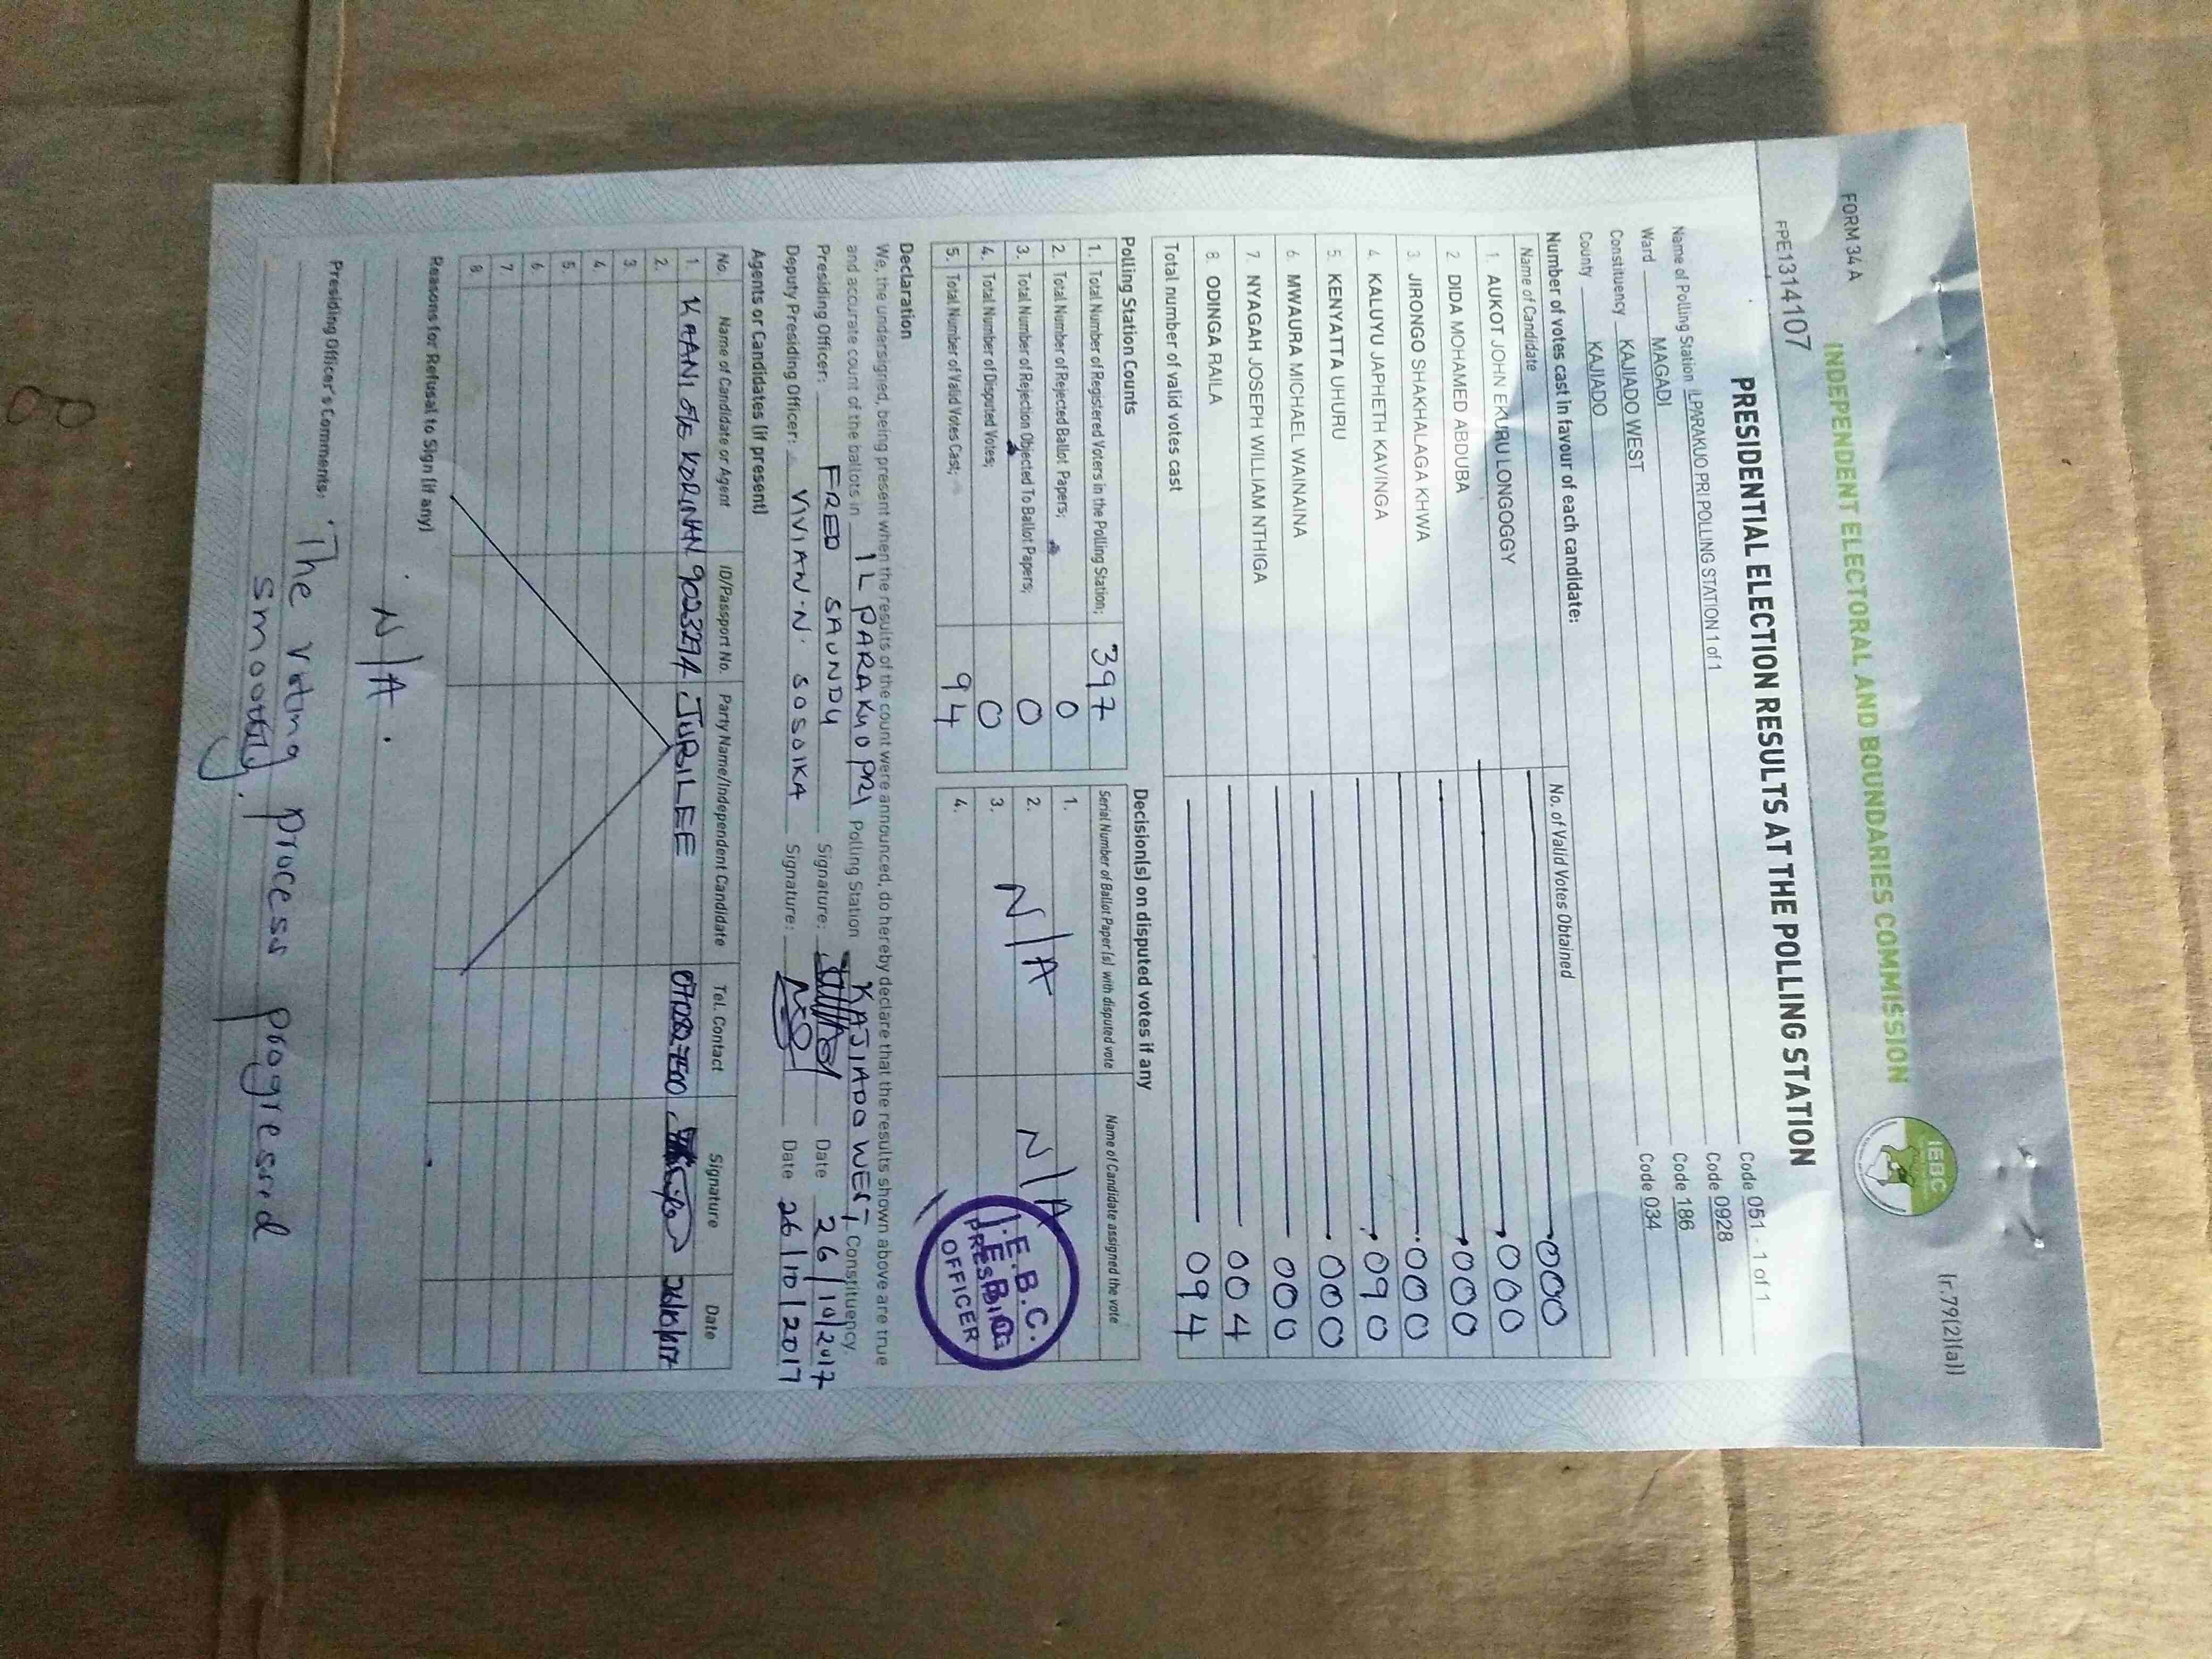 FORM 34A
(r.79(2)(a))
INDEPENDENT ELECTORAL AND BOUNDARIES COMMISSION
IEBC
FPE1314107
PRESIDENTIAL ELECTION RESULTS AT THE POLLING STATION
Name of Polling Station ILPARAKUO PRI POLLING STATION 1 of 1 Code 051 - 1 of 1
Ward MAGADI Code 0928
Constituency KAJIADO WEST Code 186
County KAJIADO Code 034
Number of votes cast in favour of each candidate:
Name of Candidate No. of Valid Votes Obtained
1. AUKOT JOHN EKURU LONGOGGY 000
2. DIDA MOHAMED ABDUBA 000
3. JIRONGO SHAKHALAGA KHWA 000
4. KALUYU JAPHETH KAVINGA 000
5. KENYATTA UHURU 090
6. MWAURA MICHAEL WAINAINA 000
7. NYAGAH JOSEPH WILLIAM NTHIGA 000
8. ODINGA RAILA 004
Total number of valid votes cast 094
Polling Station Counts
1. Total Number of Registered Voters in the Polling Station; 397
2. Total Number of Rejected Ballot Papers; 0
3. Total Number of Rejection Objected To Ballot Papers; 0
4. Total Number of Disputed Votes; 0
5. Total Number of Valid Votes Cast; 94
Decision(s) on disputed votes if any
Serial Number of Ballot Paper (s) with disputed vote Name of Candidate assigned the vote
1.
2. N/A N/A
3.
4.
I.E.B.C.
PRESIDING
OFFICER
Declaration
We, the undersigned, being present when the results of the count were announced, do hereby declare that the results shown above are true
and accurate count of the ballots in IL PARAKUO PRI Polling Station KAJIADO WEST Constituency.
Presiding Officer: FRED SAUNDU Signature: Date 26/10/2017
Deputy Presiding Officer: VIVIAN N. SOSOIKA Signature: Date 26/10/2017
Agents or Candidates (if present)
No. Name of Candidate or Agent ID/Passport No. Party Name/Independent Candidate Tel. Contact Signature Date
1. JUBILEE 26/10/17
2.
3.
4.
5.
6.
7.
8.
Reasons for Refusal to Sign (if any)
N/A.
Presiding Officer's Comments. The voting process progressed
smoothly.